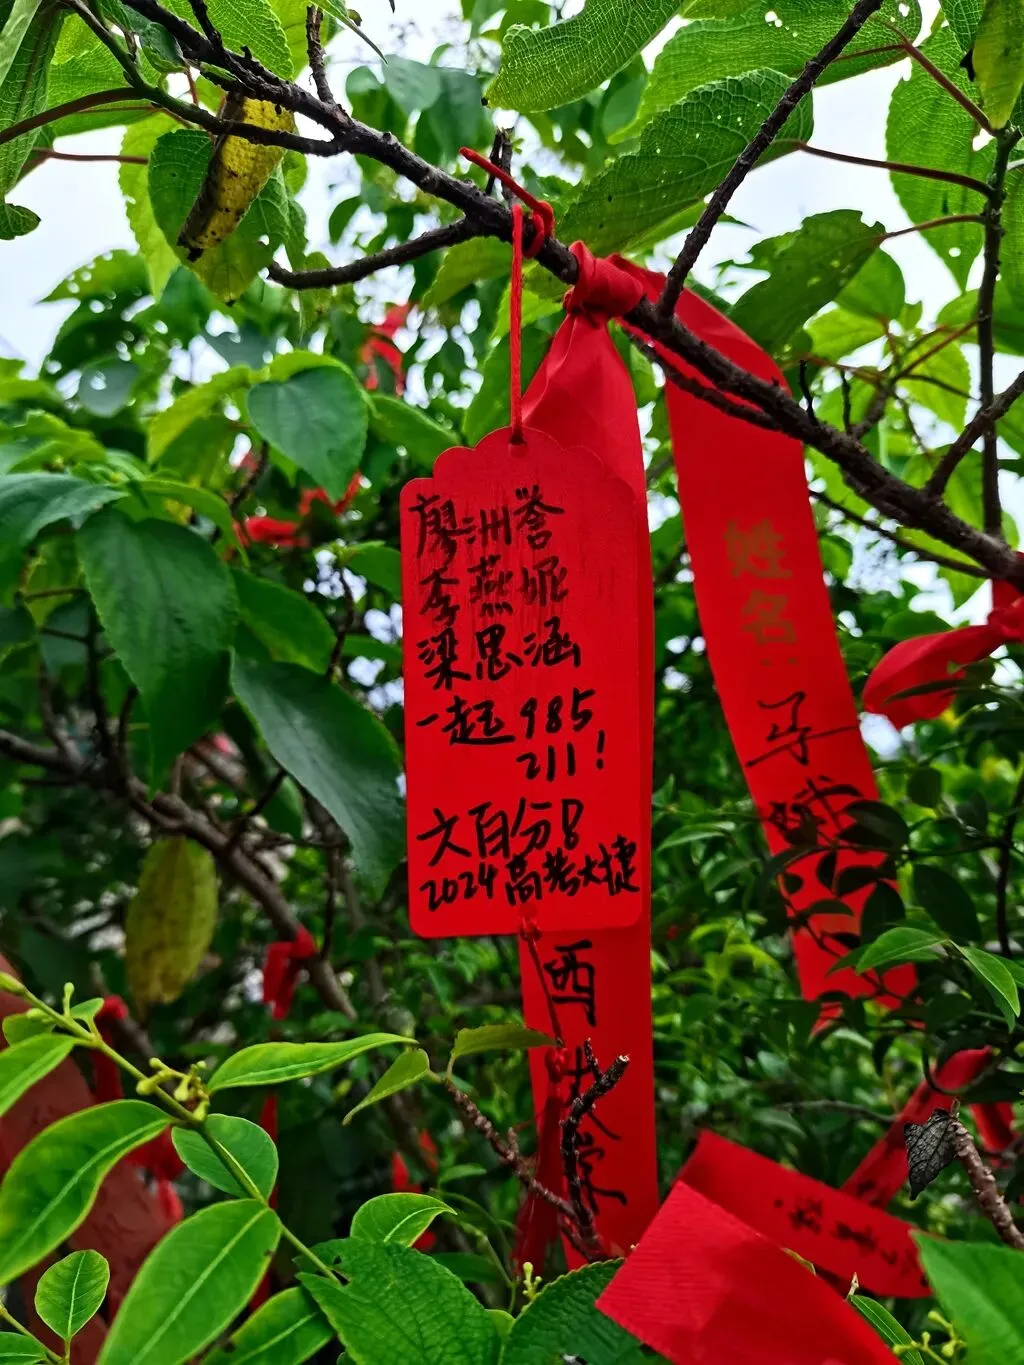 廖洲誉
李燕妮
梁思涵
一起985
211！
六百分8
2024高考大捷
姓名：
西
大学